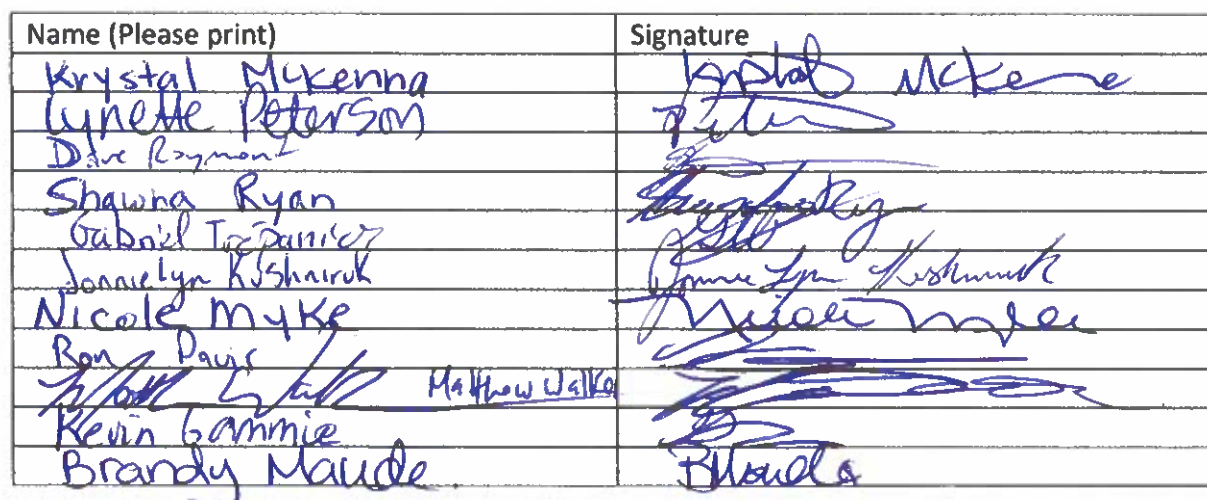 Name (Please print) Signature
Krystal McKenna Krystal McKenna
Lynette Peterson
Dave Raymont
Shawna Ryan
Gabriel Trépanier
Jonnielyn Kushniruk Jonnie Lyn Kushniruk
Nicole Myke Nicole Myke
Ron Davis
Matthew Walker
Kevin Gammie
Brandy Maude BMaude